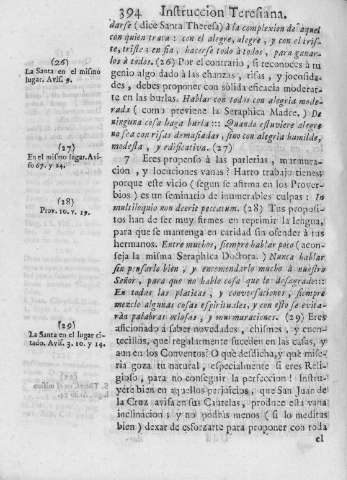 394 Instruccion Teresiana.
darse (dice Santa Theresa) à la complexion de aquel
con quien trata: con el alegre, alegre, y con el tris-
te, triste: en fin, hacerse todo à todos, para ganar-
los à todos. (26) Por el contrario, si reconoces à tu
genio algo dado à las chanzas, risas, y jocosida-
des, debes proponer con sólida eficacia moderar-
te en las burlas. Hablar con todos con alegria mode-
rada (como previene la Seraphica Madre.) De
ninguna cosa haga burla::: Quando estuviere alegre
no sea con risas demasiadas, sino con alegria humilde,
modesta, y edificativa. (27)
7 Eres propenso à las parlerias, murmura-
cion, y locuciones vanas? Harto trabajo tienes;
porque este vicio (segun se afirma en los Prover-
bios) es un seminario de inumerables culpas: In
multiloquio non deerit peccatum. (28) Tus proposi-
tos han de ser muy firmes en reprimir la lengua,
para que se mantenga en caridad sin ofender à tus
hermanos. Entre muchos, siempre hablar poco (acon-
seja la misma Seraphica Doctora.) Nunca hablar
sin pensarlo bien, y encomendarlo mucho à nuestro
Señor, para que no hable cosa que le desagrade:::
En todas las platicas, y conversaciones, siempre
mezcle algunas cosas espirituales, y con esto se evita-
ràn palabras ociosas, y murmuraciones. (29) Eres
aficionado à saber novedades, chismes, y cuen-
tecillos, que regularmente suceden en las casas, y
aun en los Conventos? O què desdicha, y què mise-
ria goza tu natural, especialmente si eres Reli-
gioso, para no conseguir la perfeccion! Instru-
yete bien en aquellos perjuicios, que San Juan de
la Cruz avisa en sus Cautelas, produce esta vana
inclinacion; y no podràs menos (si lo meditas
bien) dexar de esforzarte para proponer con toda
el
(26)
La Santa en el mismo
lugar. Avis. 9.
(27)
En el mismo lugar. Avi-
so 67. y 24.
(28)
Prov. 10. v. 19.
(29)
La Santa en el lugar ci-
tado. Avis. 3. 10. y 14.